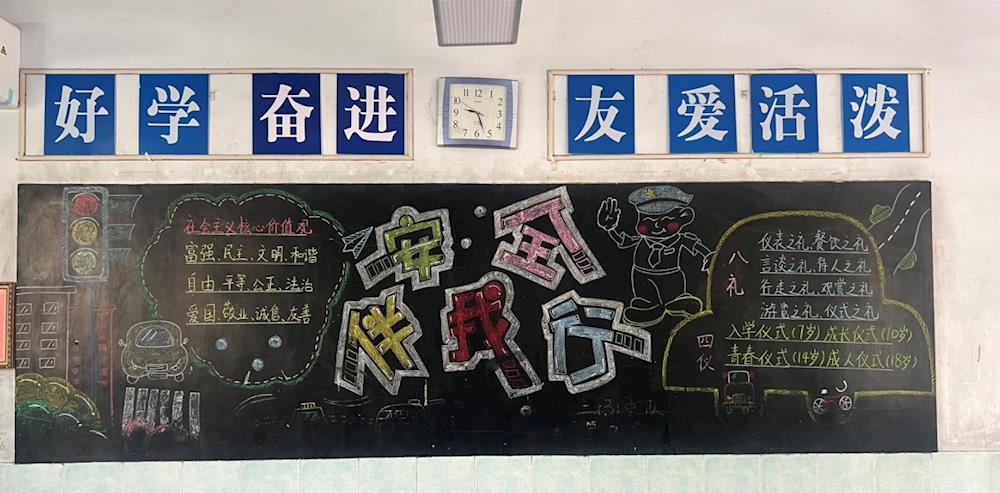 好学奋进
友爱活泼
社会主义核心价值观
富强、民主、文明、和谐
自由、平等、公正、法治
爱国、敬业、诚信、友善
安全
伴我行
八礼
仪表之礼、餐饮之礼
言谈之礼、待人之礼
行走之礼、观赏之礼
游览之礼、仪式之礼
四仪
入学仪式(7岁)成长仪式(10岁)
青春仪式(14岁)成人仪式(18岁)